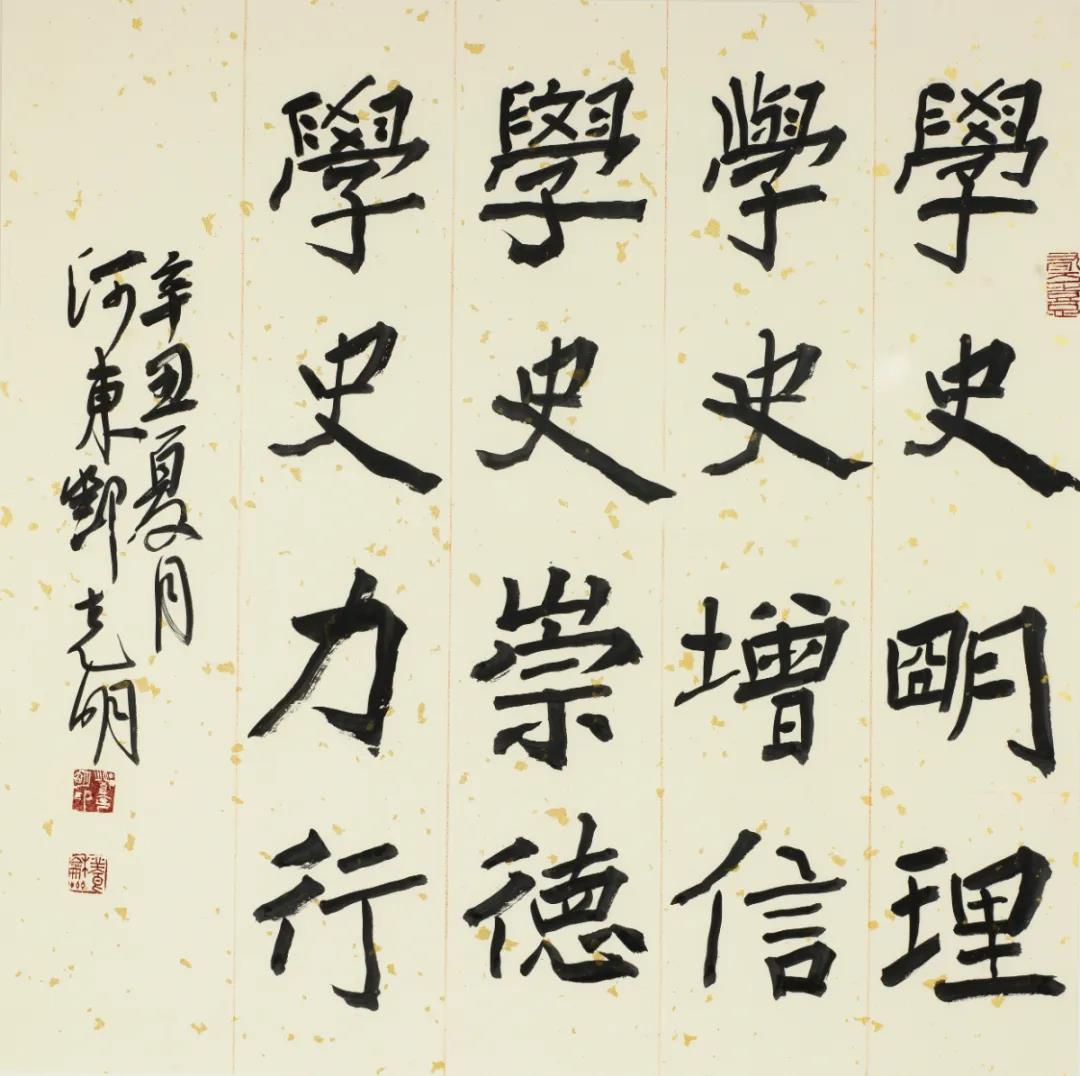 學史明理
學史增信
學史崇德
學史力行
辛丑夏月
河東鄧克明